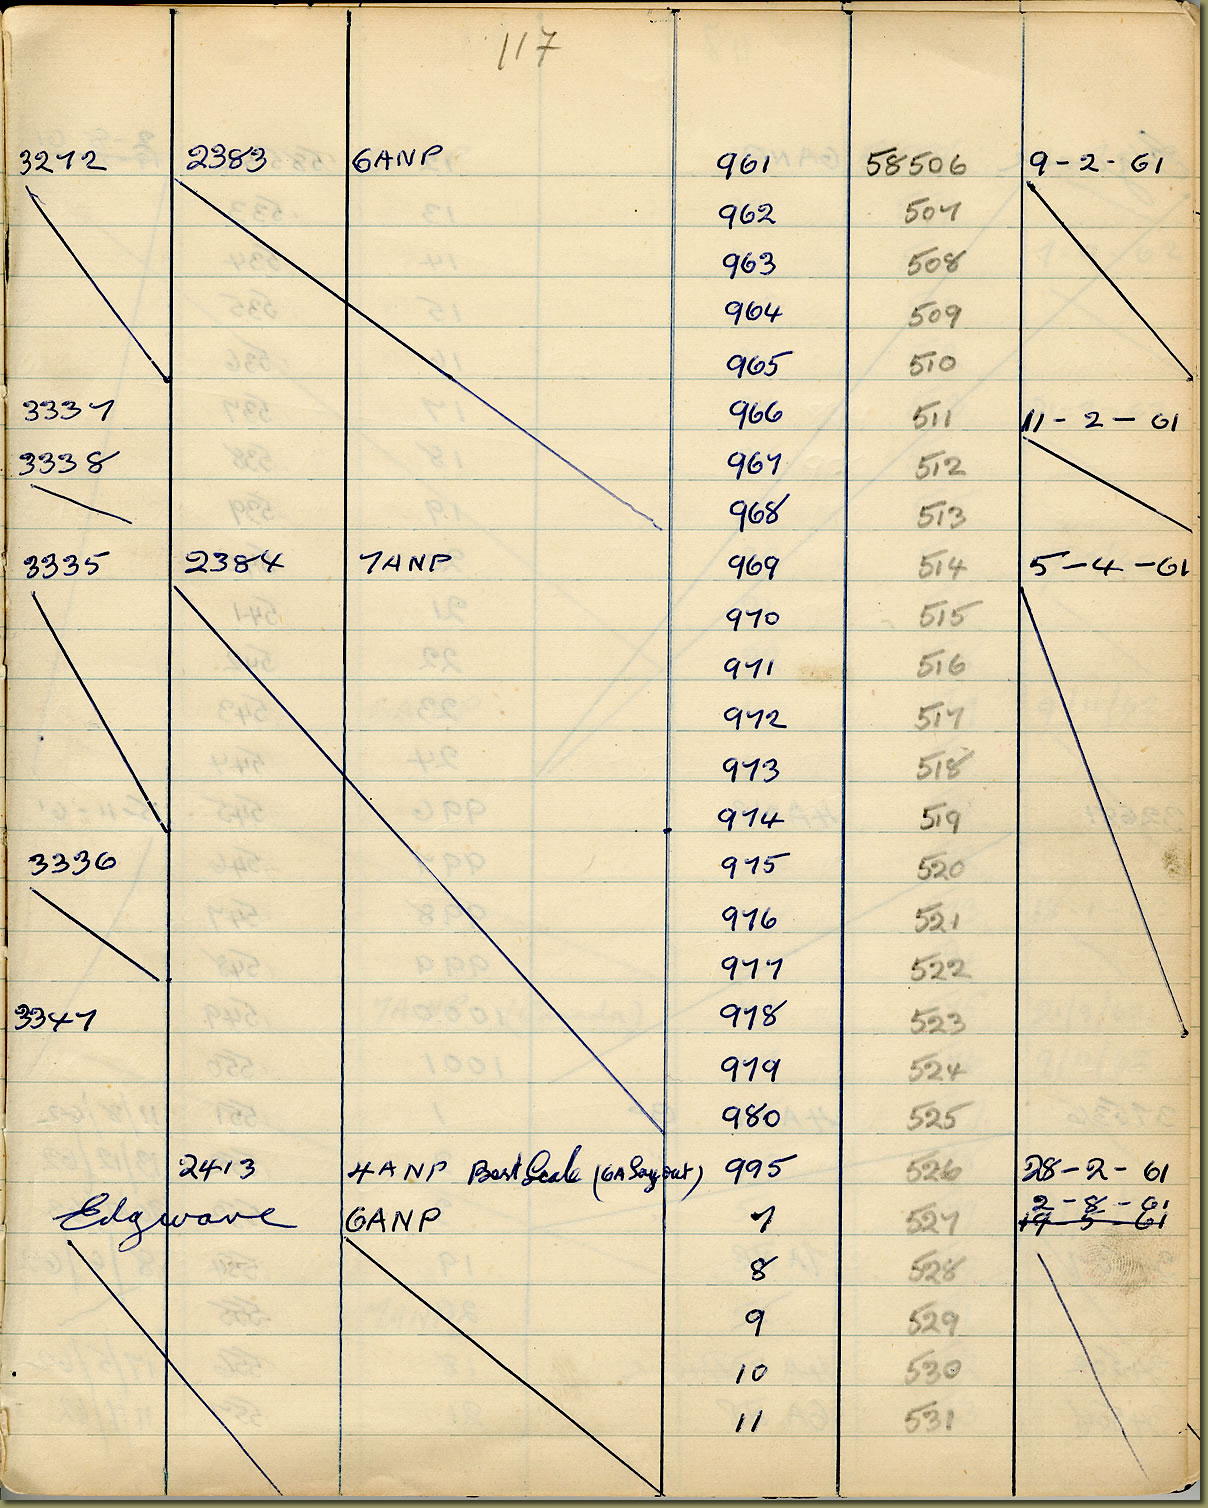 117
3272 2383 6ANP 961 58506 9-2-61
962 507
963 508
964 509
965 510
3337 966 511 11-2-61
3338 967 512
968 513
3335 2384 7ANP 969 514 5-4-61
970 515
971 516
972 517
973 518
974 519
3336 975 520
976 521
977 522
3347 978 523
979 524
980 525
2413 4ANP Best Scale (6A layout) 995 526 28-2-61
2-8-61
Edgware 6ANP 7 527 19-5-61
8 528
9 529
10 530
11 531